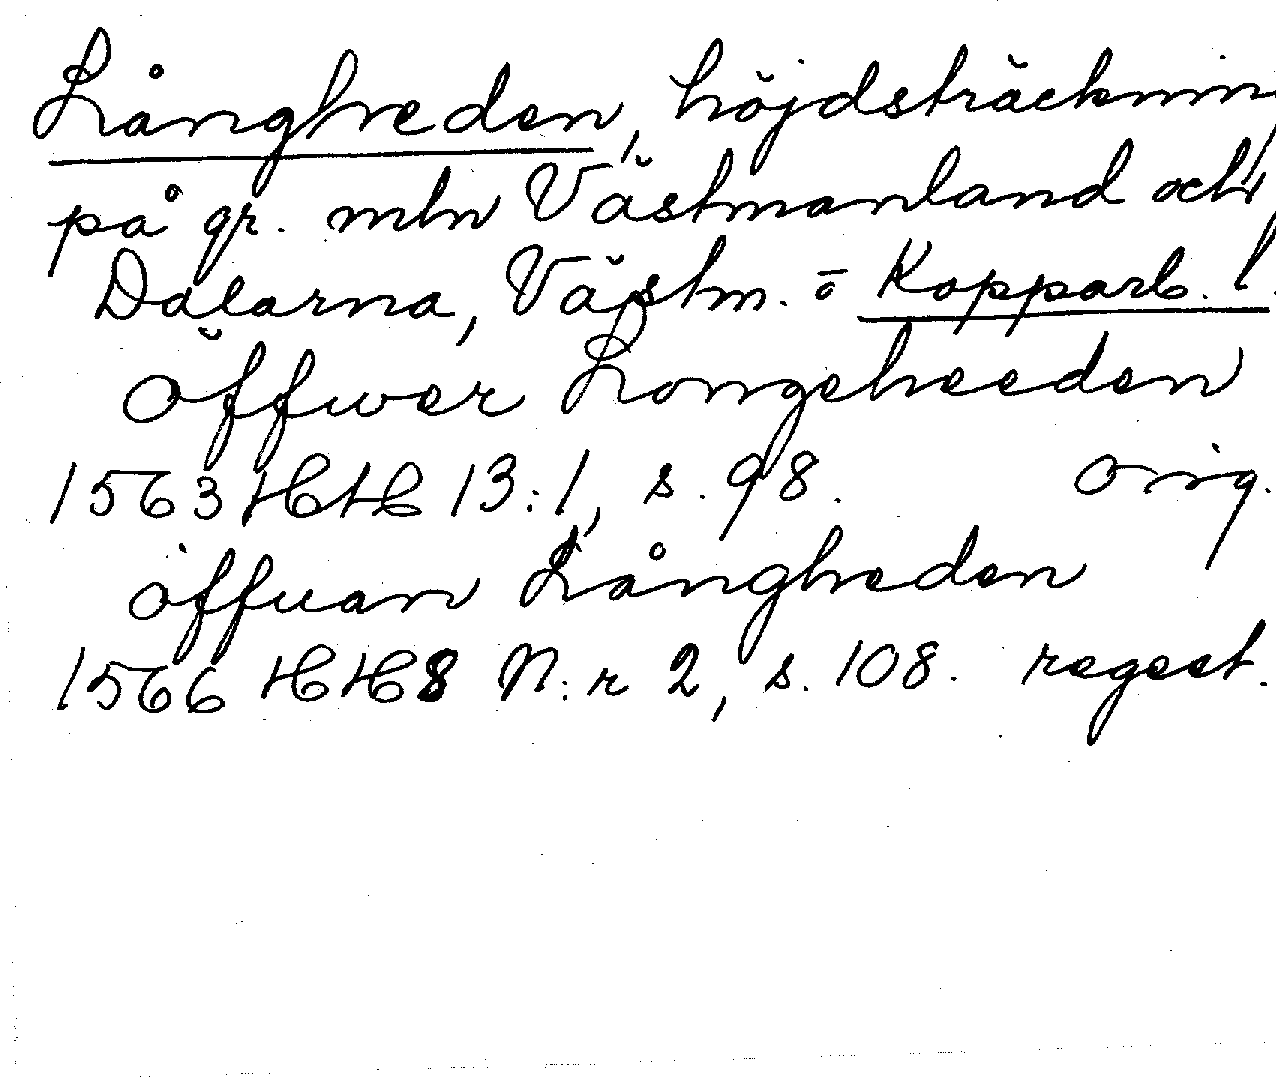 Långheden, höjdsträckning
på gr. mln Västmanland och
Dalarna, Västm. o Kopparb. l.
öffwer Longeheeden
1563 HH 13:1, s. 98. orig.
öffuan Långheden
1566 HH8 N:r 2, s. 108. regest.